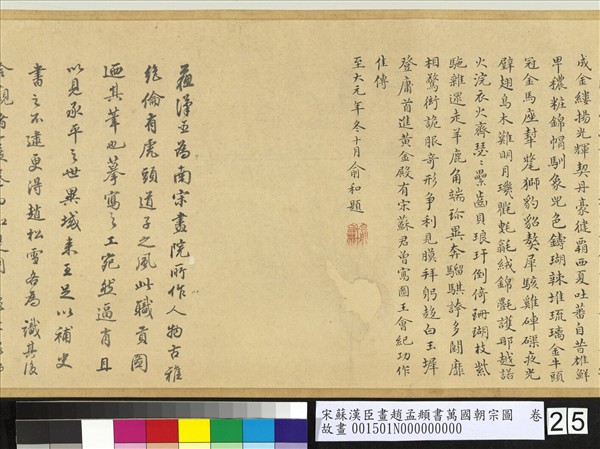 成金縷揚光輝契丹豪健霸西夏吐蕃自昔雄鮮
卑襛粧錦帽馴象兕色鑄瑚辣堆琉璃金牛頭
冠金馬座犛麾獅豹貂獒犀駭雞硨磲夜光
璧翅烏木難明月璣氍毹絨錦氈護那越諾
火浣衣火齊瑟瑟纍齒貝琅玕倒倚珊瑚枝紫
駞雜遝走羊鹿角端珍異奔騮騏誇多鬪靡
相驚衒詭脤奇形爭利見膜拜躬趍白玉墀
登庸首進黃金殿有宋蘇君曾寫圖王會紀功作
佳傳
至大元年冬十月俞和題
蘇漢臣為南宋畫院所作人物古雅
絕倫有虎頭道子之風此職貢圖
迺其筆也摹寫之工宛然逼肖且
以見承平之世異域來王足以補史
書之不逮更得趙松雪各為識其後
宋蘇漢臣畫趙孟頫書萬國朝宗圖 卷
故畫 001501N000000000
25